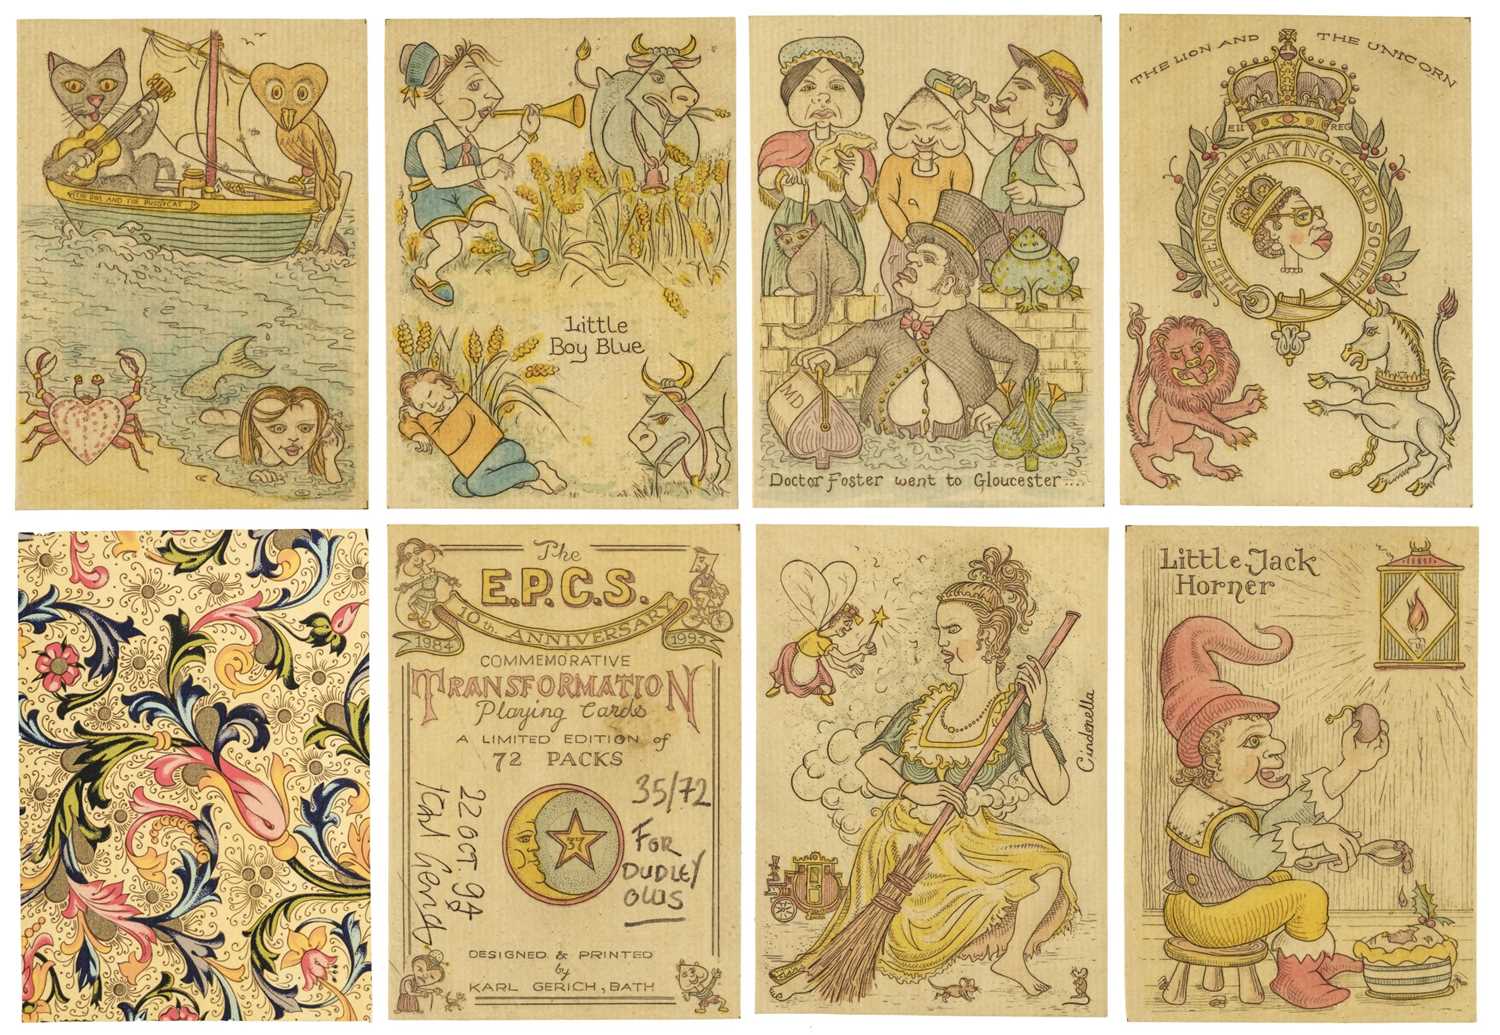 THE OWL AND THE PUSSYCAT
Little
Boy Blue
MD
Doctor Foster went to Gloucester....
THE LION AND THE UNICORN
EII REG
THE ENGLISH PLAYING-CARD SOCIETY
The
E.P.C.S.
10th. ANNIVERSARY
1984 1993
COMMEMORATIVE
TRANSFORMATION
Playing Cards
A LIMITED EDITION of
72 PACKS
35/72
FOR
DUDLEY
OLLIS
37
22 OCT. 94
Karl Gerich
DESIGNED & PRINTED
by
KARL GERICH, BATH
Cinderella
Little Jack
Horner